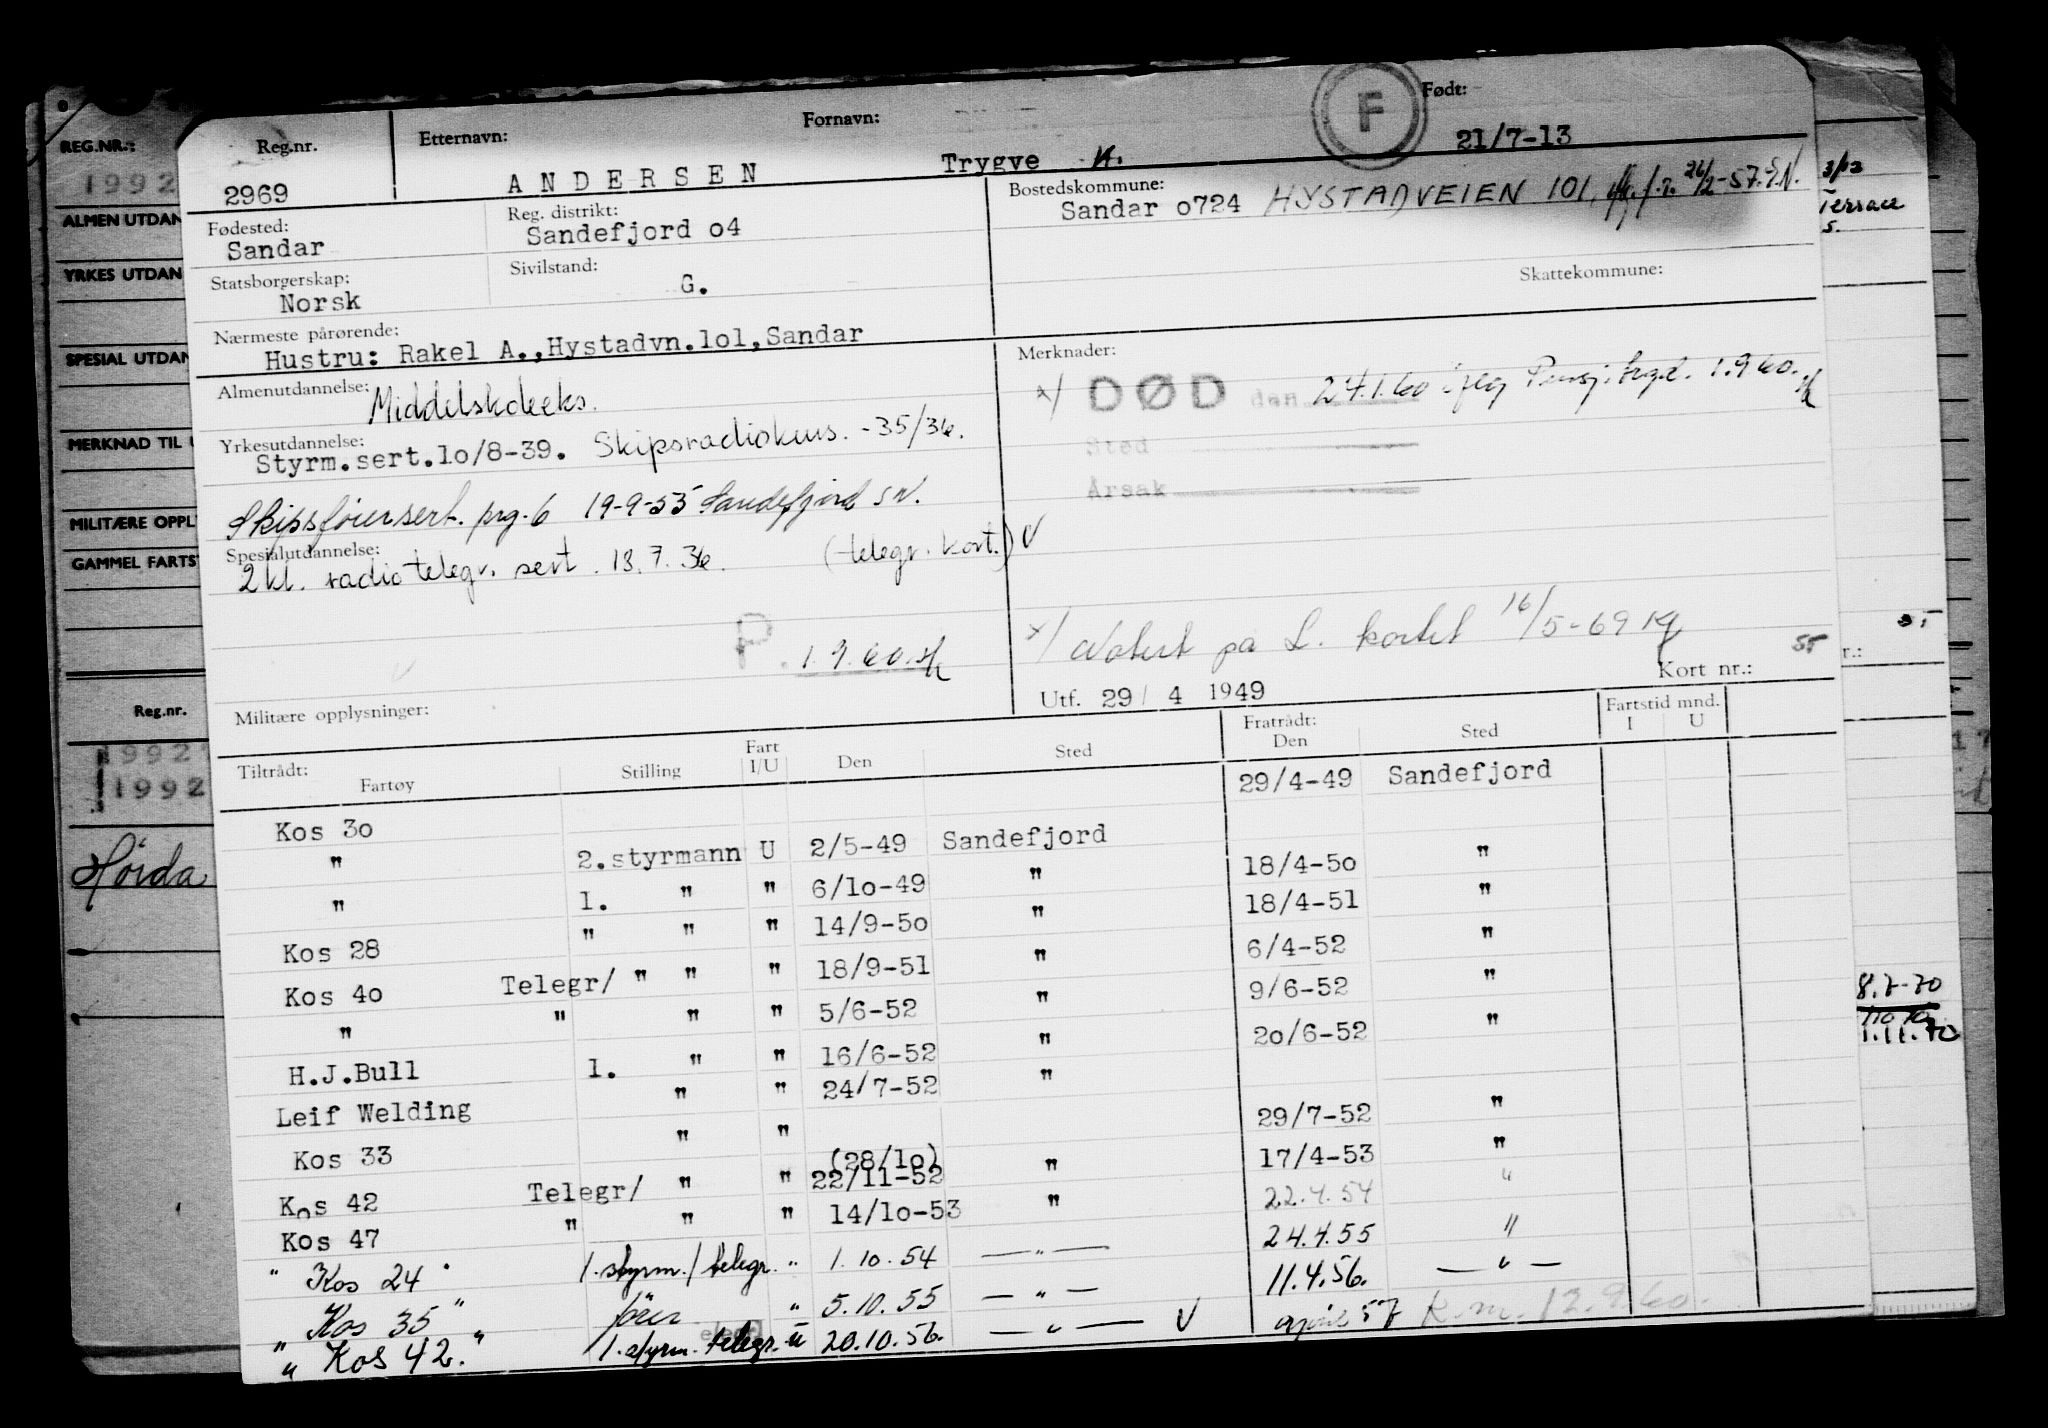 Reg.nr. Etternavn: Fornavn: F Født:
2969 ANDERSEN Trygve A. 21/7-13
Fødested: Reg. distrikt: Bostedskommune:
Sandar Sandefjord o4 Sandar o724 HYSTADVEIEN 101,
26/2-57. S.N.
Statsborgerskap: Sivilstand: Skattekommune:
Norsk G.
Nærmeste pårørende:
Hustru: Rakel A.,Hystadvn.lol,Sandar
Merknader:
x/ DØD den 24.1.60 iflg Pensj. trgd. 1.9 60.
Sted
Årsak
Almenutdannelse:
Middelskoleeks.
Yrkesutdannelse:
Styrm.sert.lo/8-39. Skipsradiokurs. -35/36.
Skipsførersert. prg. 6 19-9-55 Sandefjord S.N.
Spesialutdannelse:
2 kl. radiotelegr. sert. 13.7.36. (telegr. kort.) V
P. 1.9.60.
x/ Notert på L. kortet 16/5-69
55
Kort nr.:
Militære opplysninger:
Utf. 29/ 4 1949
Tiltrådt: Fartøy Stilling Fart I/U Den Sted Fratrådt: Den Sted Fartstid mnd. I U
29/4-49 Sandefjord
Kos 3o
" 2.styrmann U 2/5-49 Sandefjord
" 1. " " 6/lo-49 " 18/4-5o "
Kos 28 " " " 14/9-5o " 18/4-51 "
Kos 4o Telegr/ " " " 18/9-51 " 6/4-52 "
" " " " 5/6-52 " 9/6-52 "
H.J.Bull 1. " " 16/6-52 " 2o/6-52 "
Leif Welding " " 24/7-52 "
Kos 33 " " 29/7-52 "
(28/lo)
Kos 42 Telegr/ " " 22/11-52 " 17/4-53 "
Kos 47 " " " 14/lo-53 " 22.4.54 "
" Kos 24 " 1.styrm./telegr. " 1.10.54 — " — 24.4.55 "
" Kos 35 " fører " 5.10.55 — " — 11.4.56. — " —
" Kos 42. " 1.styrm. telegr. u 20.10.56. — " — V april 57 R.m. 12.9.60.
REG.NR.:
1992
ALMEN UTDAN
YRKES UTDAN
SPESIAL UTDAN
MERKNAD TIL
MILITÆRE OPPL
GAMMEL FARTS
Reg.nr.
1992
1992
Hørda
3/12
Terrace
s.
r.:
17
8.7-70
1.11.70